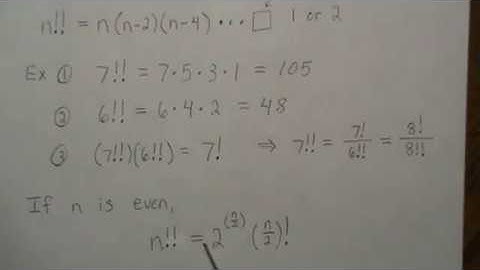 n!! = n(n-2)(n-4) ··· □ 1 or 2
Ex ① 7!! = 7·5·3·1 = 105
② 6!! = 6·4·2 = 48
③ (7!!)(6!!) = 7! ⇒ 7!! = 7!/6!! = 8!/8!!
If n is even,
n!! = 2^(n/2) (n/2)!